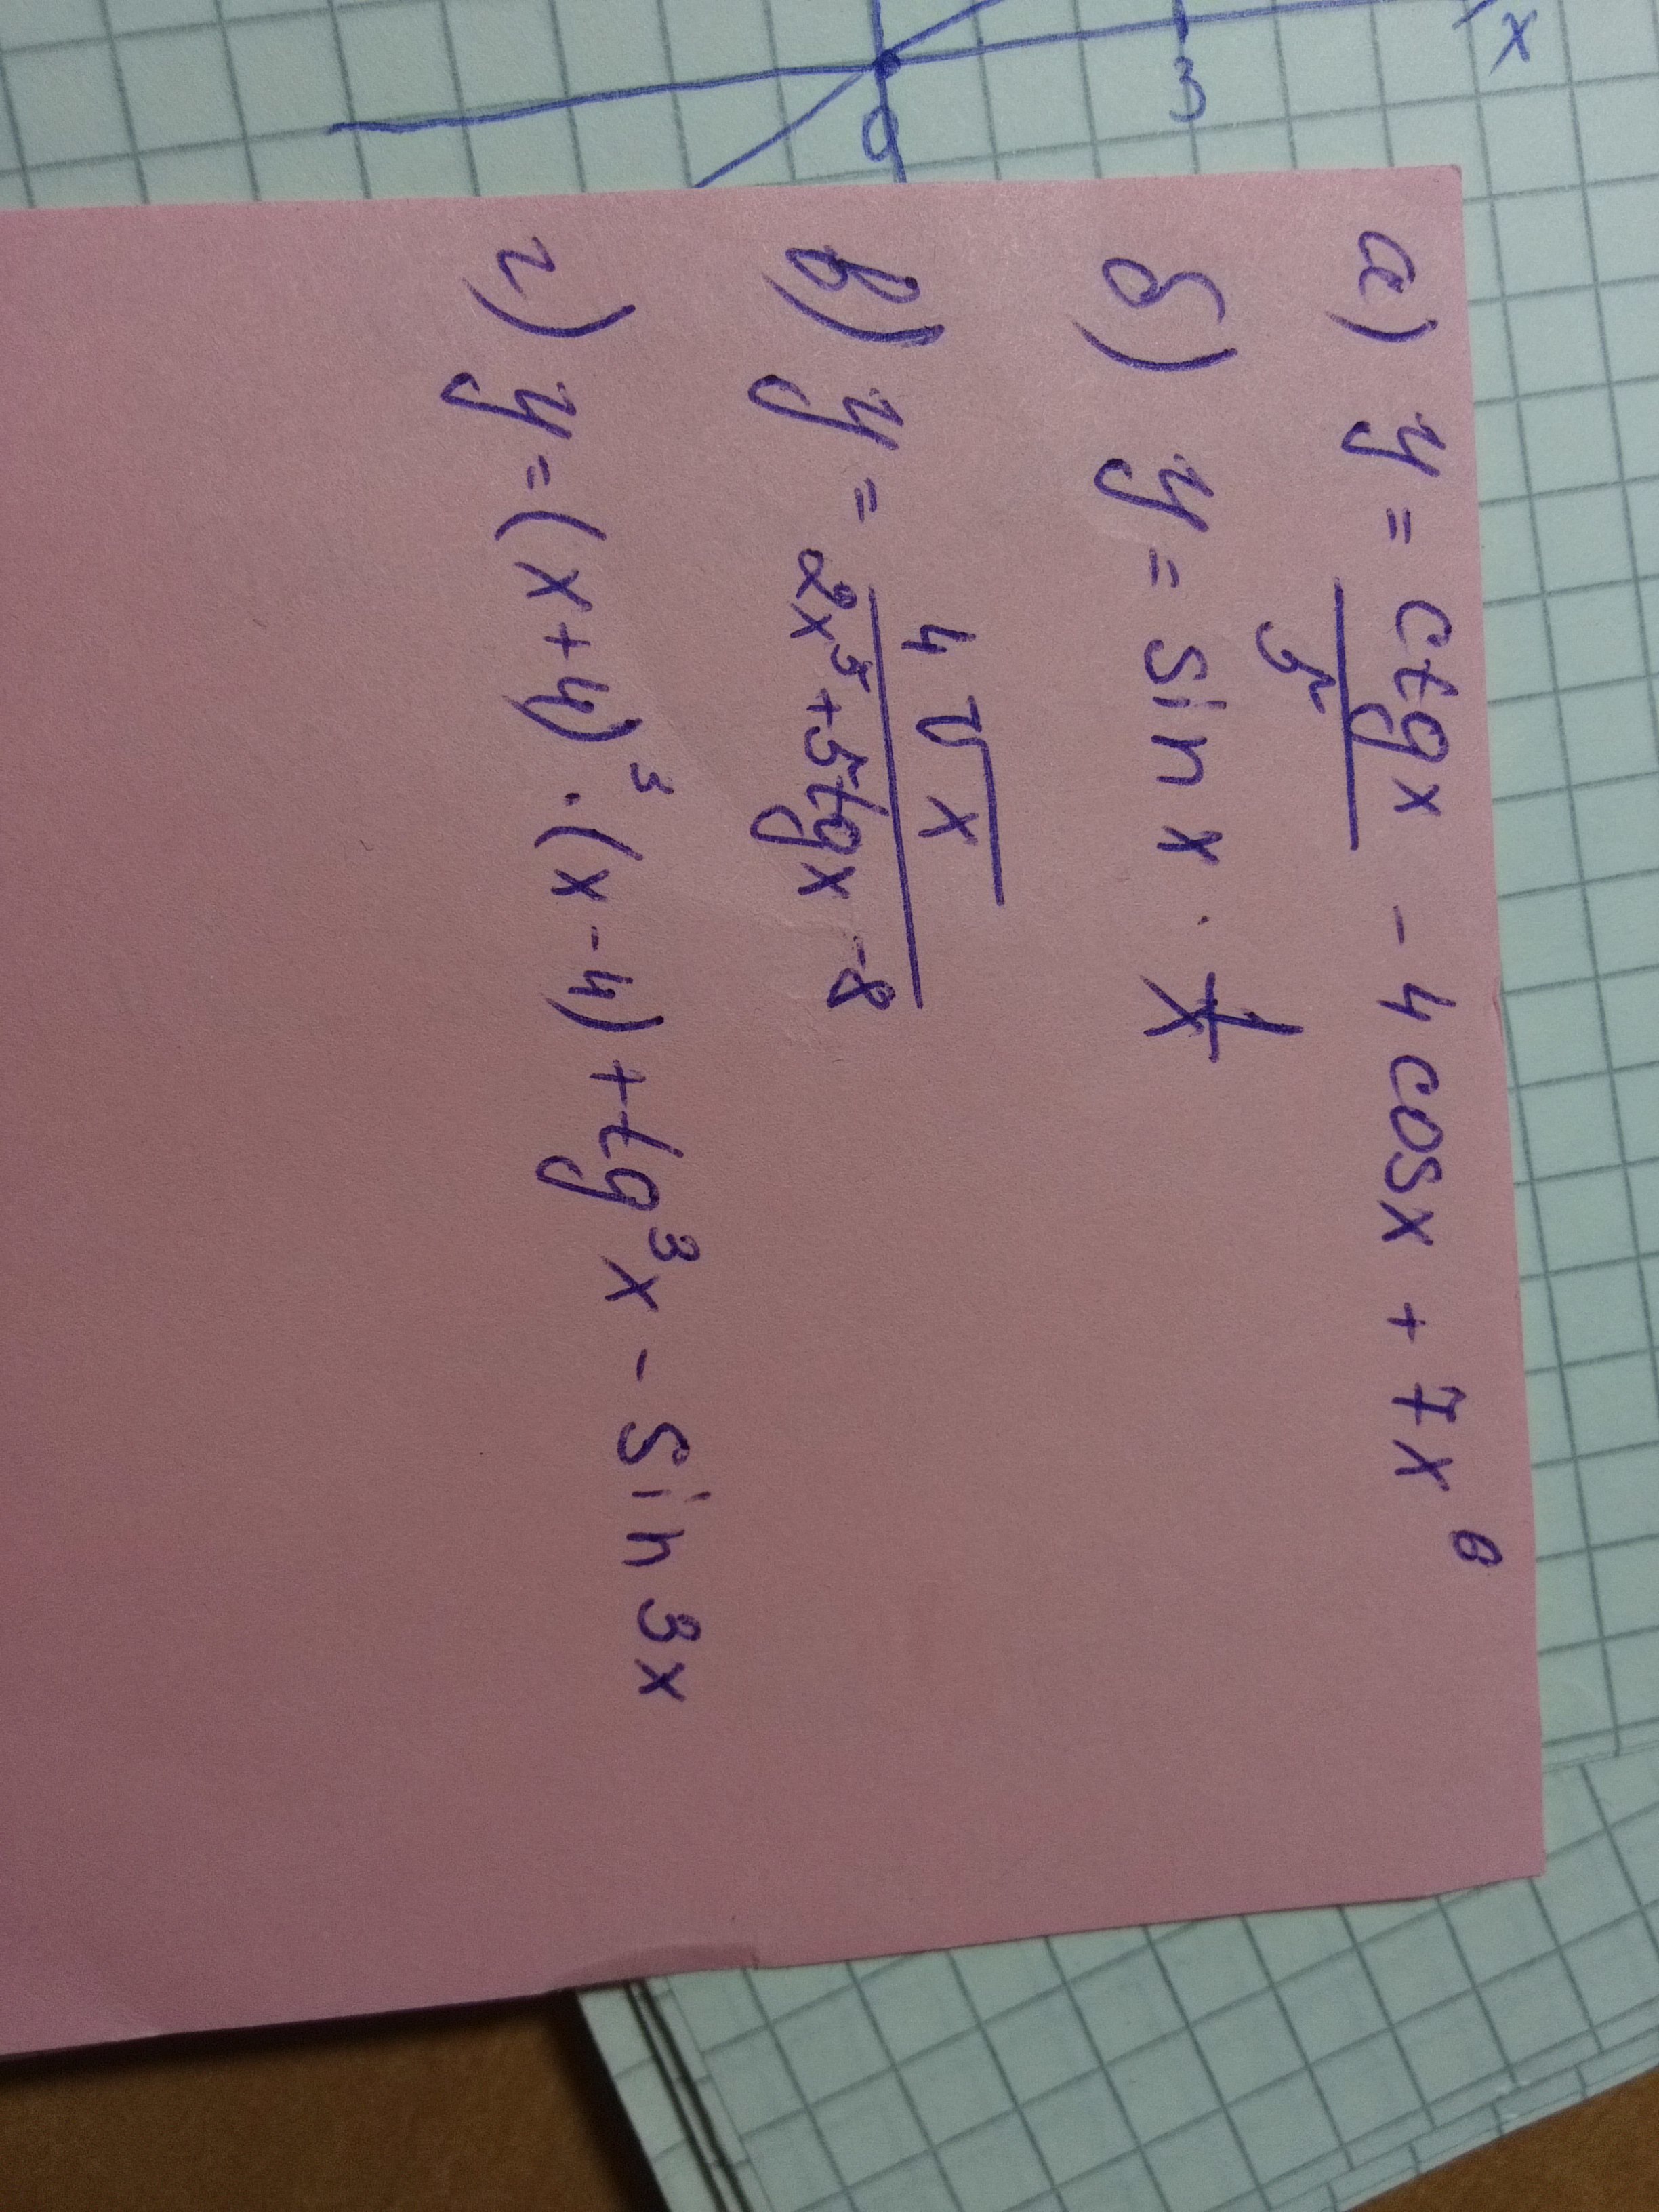 x
3
0
а) y = ctg x / 5 - 4 cos x + 7x^6
б) y = sin x · 1/x
в) y = 4√x / (2x^5 + 5tg x - 8)
г) y = (x + 4)^3 · (x - 4) + tg^3 x - sin 3x